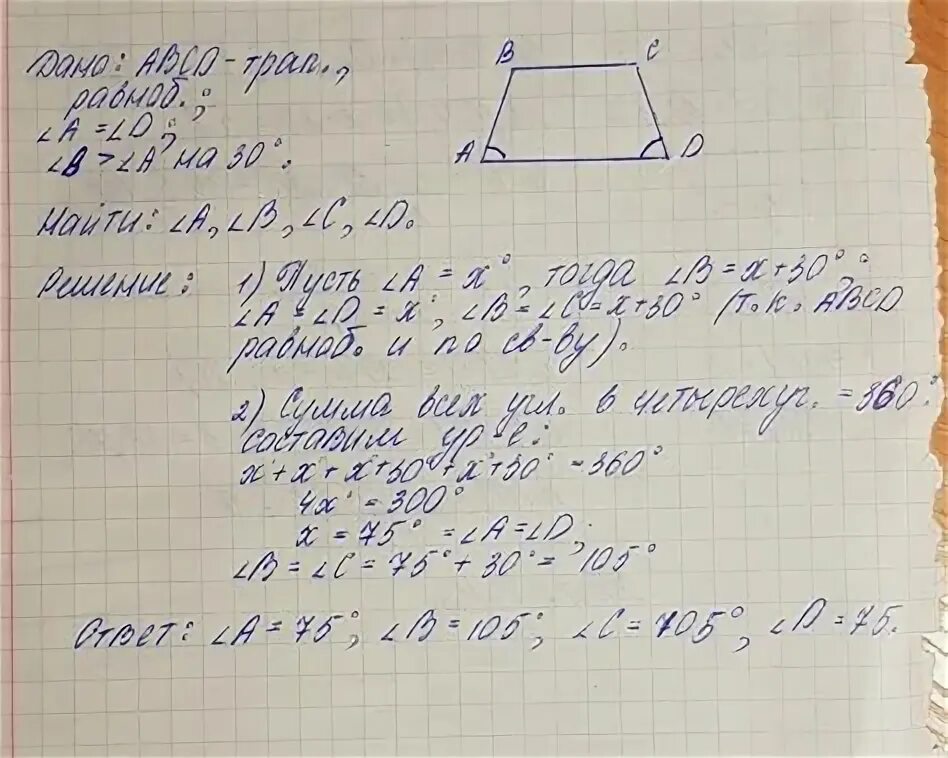 Дано: ABCD - трап.,
равноб.;
∠A = ∠D;
∠B > ∠A на 30°.
B C
A D
Найти: ∠A, ∠B, ∠C, ∠D.
Решение: 1) Пусть ∠A = x°, тогда ∠B = x+30°;
∠A = ∠D = x°; ∠B = ∠C = x+30° (т.к. ABCD
равноб. и по св-ву).
2) Сумма всех угл. в четырехуг. = 360°.
составим ур-е:
x + x + x+30° + x+30° = 360°
4x° = 300°
x = 75° = ∠A = ∠D;
∠B = ∠C = 75° + 30° = 105°
Ответ: ∠A = 75°, ∠B = 105°; ∠C = 105°, ∠D = 75.